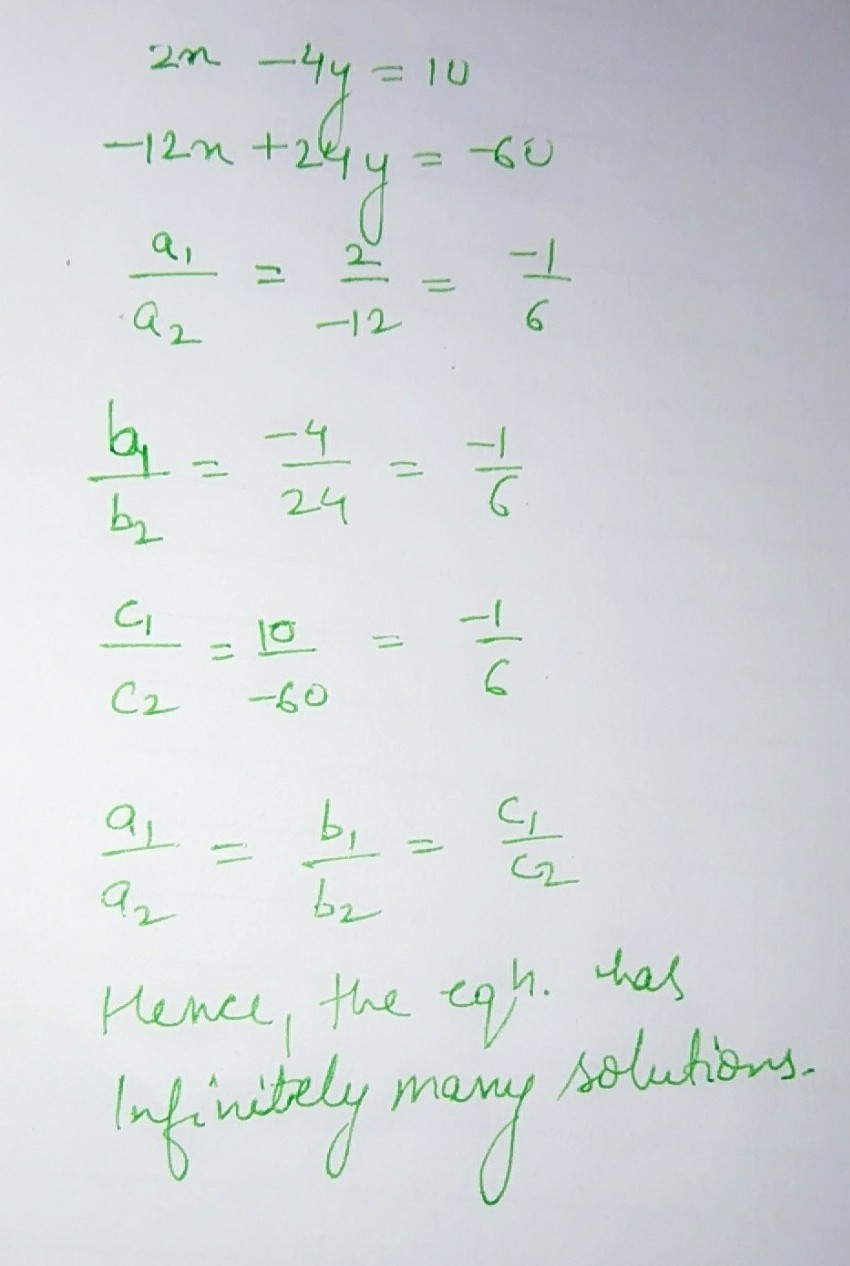 2x - 4y = 10
-12x + 24y = -60
a₁/a₂ = 2/-12 = -1/6
b₁/b₂ = -4/24 = -1/6
c₁/c₂ = 10/-60 = -1/6
a₁/a₂ = b₁/b₂ = c₁/c₂
Hence, the eqn. has
Infinitely many solutions.